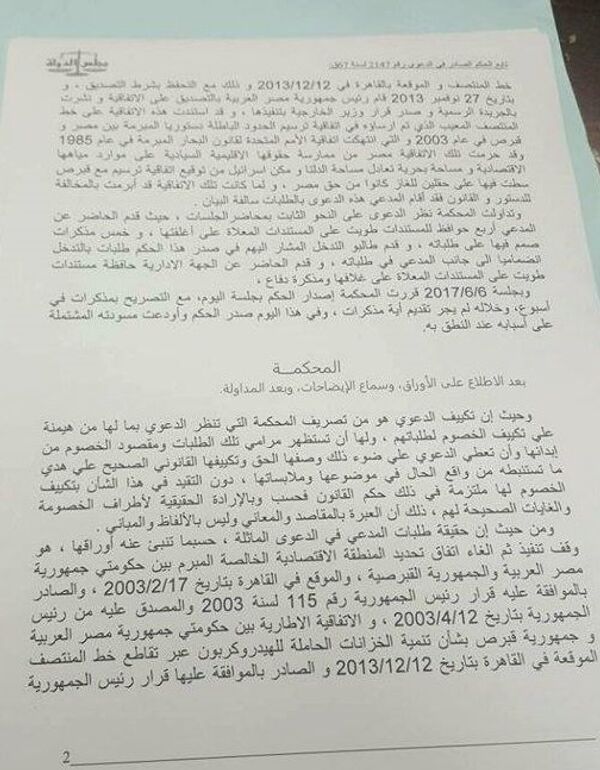 مجلس الدولة
تابع الحكم الصادر في الدعوى رقم 2147 لسنة 67ق:
خط المنتصف و الموقعة بالقاهرة في 2013/12/12 و ذلك مع التحفظ بشرط التصديق ، و
بتاريخ 27 نوفمبر 2013 قام رئيس جمهورية مصر العربية بالتصديق على الاتفاقية و نشرت
بالجريدة الرسمية و صدر قرار وزير الخارجية بتنفيذها ، و قد استندت هذه الاتفاقية على خط
المنتصف المعيب الذي تم ارساؤه في اتفاقية ترسيم الحدود الباطلة دستوريا المبرمة بين مصر و
قبرص في عام 2003 و التي انتهكت اتفاقية الأمم المتحدة لقانون البحار المبرمة في عام 1985
وقد حرمت تلك الاتفاقية مصر من ممارسة حقوقها الاقليمية السيادية على موارد مياهها
الاقتصادية و مساحة بحرية تعادل مساحة الدلتا و مكن اسرائيل من توقيع اتفاقية ترسيم مع قبرص
سطت فيها على حقلين للغاز كانوا من حق مصر ، و لما كانت تلك الاتفاقية قد أبرمت بالمخالفة
للدستور و القانون فقد أقام المدعي هذه الدعوى بالطلبات سالفة البيان .
وتداولت المحكمة نظر الدعوى على النحو الثابت بمحاضر الجلسات ، حيث قدم الحاضر عن
المدعي أربع حوافظ للمستندات طويت على المستندات المعلاة على أغلفتها ، و خمس مذكرات
صمم فيها على طلباته ، و قدم طالبو التدخل المشار اليهم في صدر هذا الحكم طلبات بالتدخل
انضماميا الى جانب المدعي في طلباته ، و قدم الحاضر عن الجهة الادارية حافظة مستندات
طويت على المستندات المعلاة على غلافها ومذكرة دفاع ،
وبجلسة 2017/6/6 قررت المحكمة إصدار الحكم بجلسة اليوم، مع التصريح بمذكرات في
أسبوع، وخلاله لم يجر تقديم أية مذكرات ، وفي هذا اليوم صدر الحكم وأودعت مسودته المشتملة
على أسبابه عند النطق به.
المحكمـــة
بعد الاطلاع على الأوراق، وسماع الإيضاحات، وبعد المداولة.
وحيث إن تكييف الدعوي هو من تصريف المحكمة التي تنظر الدعوي بما لها من هيمنة
علي تكييف الخصوم لطلباتهم ، ولها أن تستظهر مرامي تلك الطلبات ومقصود الخصوم من
إبدائها وأن تعطي الدعوي علي ضوء ذلك وصفها الحق وتكييفها القانوني الصحيح علي هدي
ما تستنبطه من واقع الحال في موضوعها وملابساتها ، دون التقيد في هذا الشأن بتكييف
الخصوم لها ملتزمة في ذلك حكم القانون فحسب وبالإرادة الحقيقية لأطراف الخصومة
والغايات الصحيحة لهم ، ذلك أن العبرة بالمقاصد والمعاني وليس بالألفاظ والمباني .
ومن حيث إن حقيقة طلبات المدعي في الدعوى الماثلة ، حسبما تنبئ عنه أوراقها ، هو
وقف تنفيذ ثم الغاء اتفاق تحديد المنطقة الاقتصادية الخالصة المبرم بين حكومتي جمهورية
مصر العربية والجمهورية القبرصية ، والموقع في القاهرة بتاريخ 2003/2/17 ، والصادر
بالموافقة عليه قرار رئيس الجمهورية رقم 115 لسنة 2003 والمصدق عليه من رئيس
الجمهورية بتاريخ 2003/4/12 ، و الاتفاقية الاطارية بين حكومتي جمهورية مصر العربية
و جمهورية قبرص بشأن تنمية الخزانات الحاملة للهيدروكربون عبر تقاطع خط المنتصف
الموقعة في القاهرة بتاريخ 2013/12/12 و الصادر بالموافقة عليها قرار رئيس الجمهورية
2